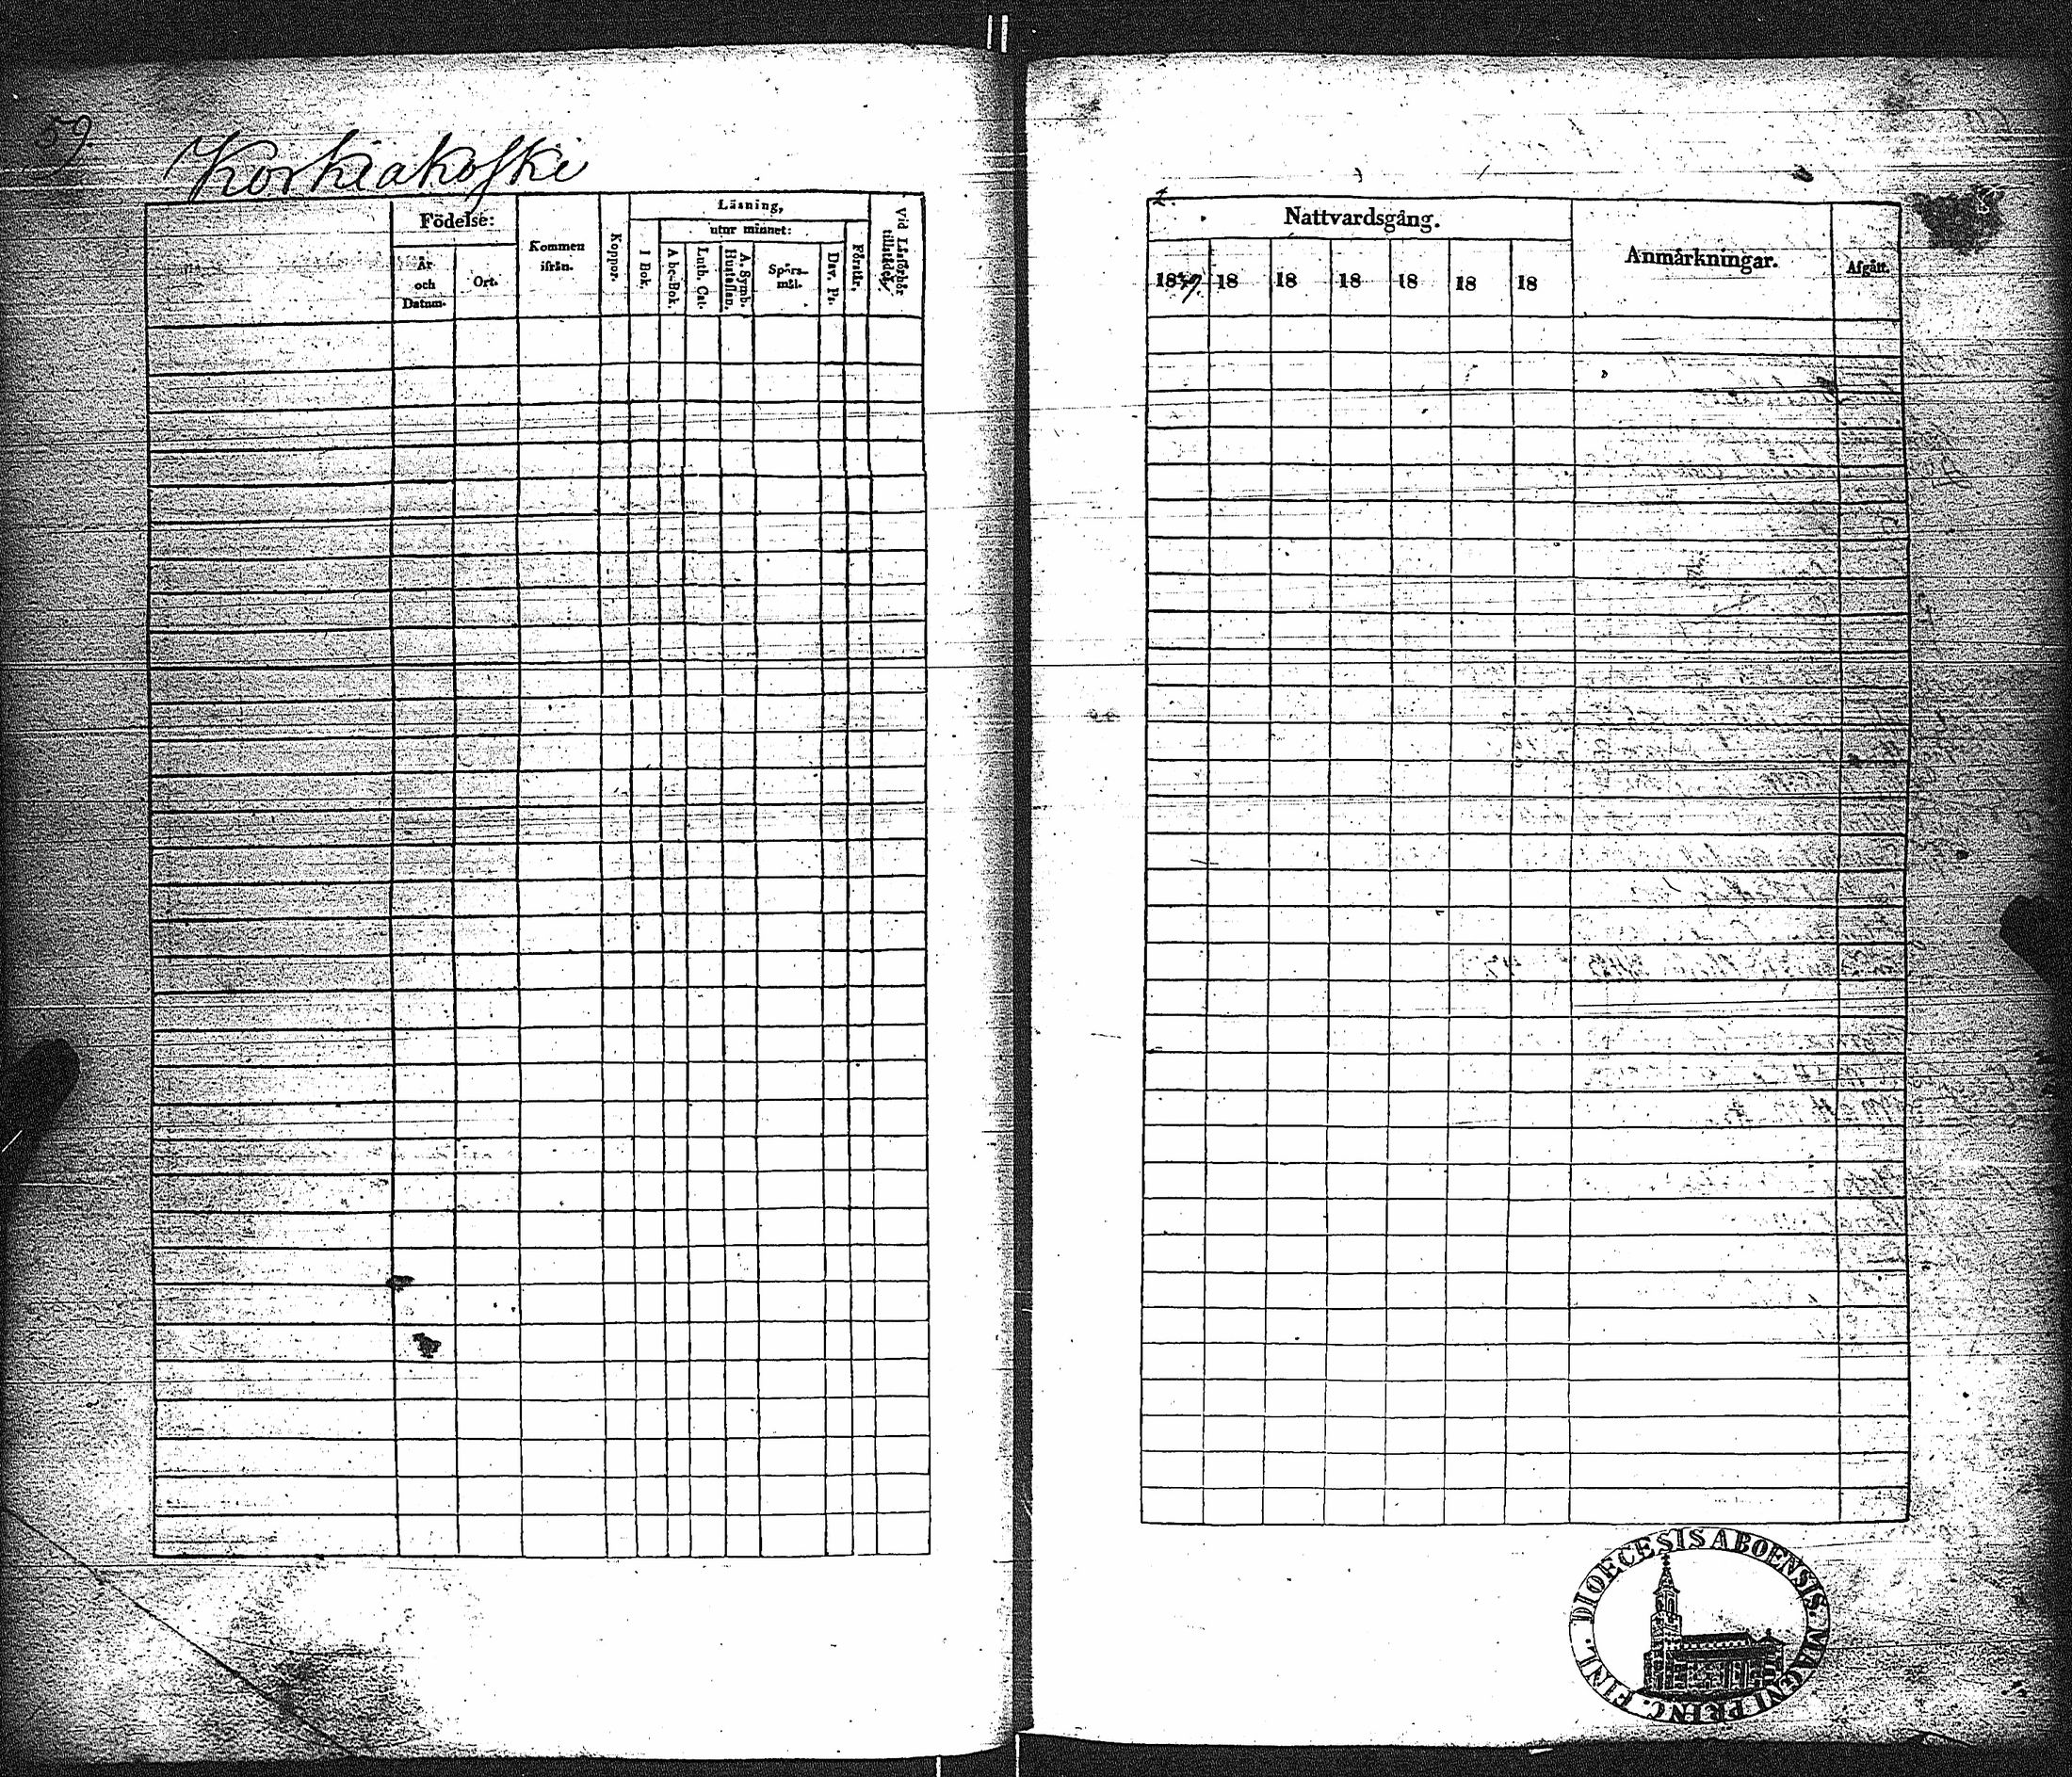 59.
Korkiakoſki
Födelse:
År och Datum.
Ort.
Kommen ifrån.
Koppor.
Läsning,
utur minnet:
I Bok.
A be-Bok.
Luth. Cat.
Hustaflan.
A. Symb.
Spörsmål.
Dav. Ps.
Förstår.
Vid Läsförhör tillstädes.
Nattvardsgång.
1839. 18 18 18 18 18 18
Anmärkningar.
Afgått.
DIOECESIS ABOENSIS. MAGNI PRINC. FINL.